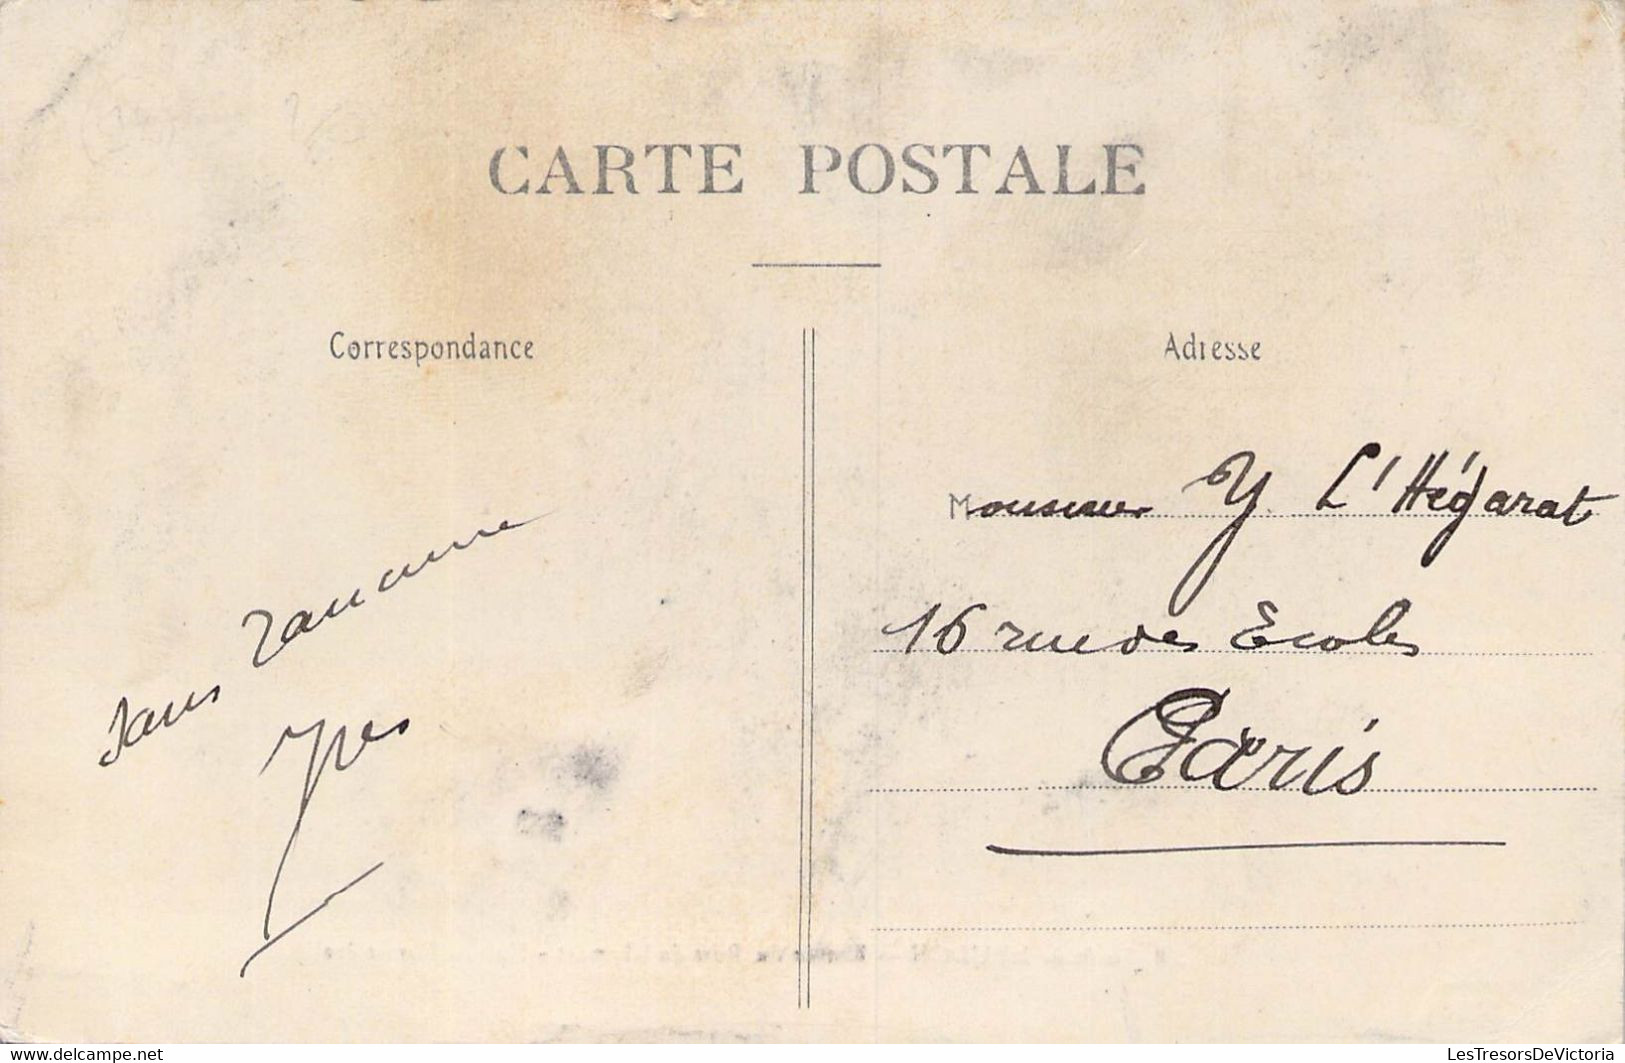 CARTE POSTALE
Correspondance
Adresse
Sans rancune
Yves
Monsieur Y L'Hégarat
16 rue des Ecoles
Paris
delcampe.net
LesTresorsDeVictoria